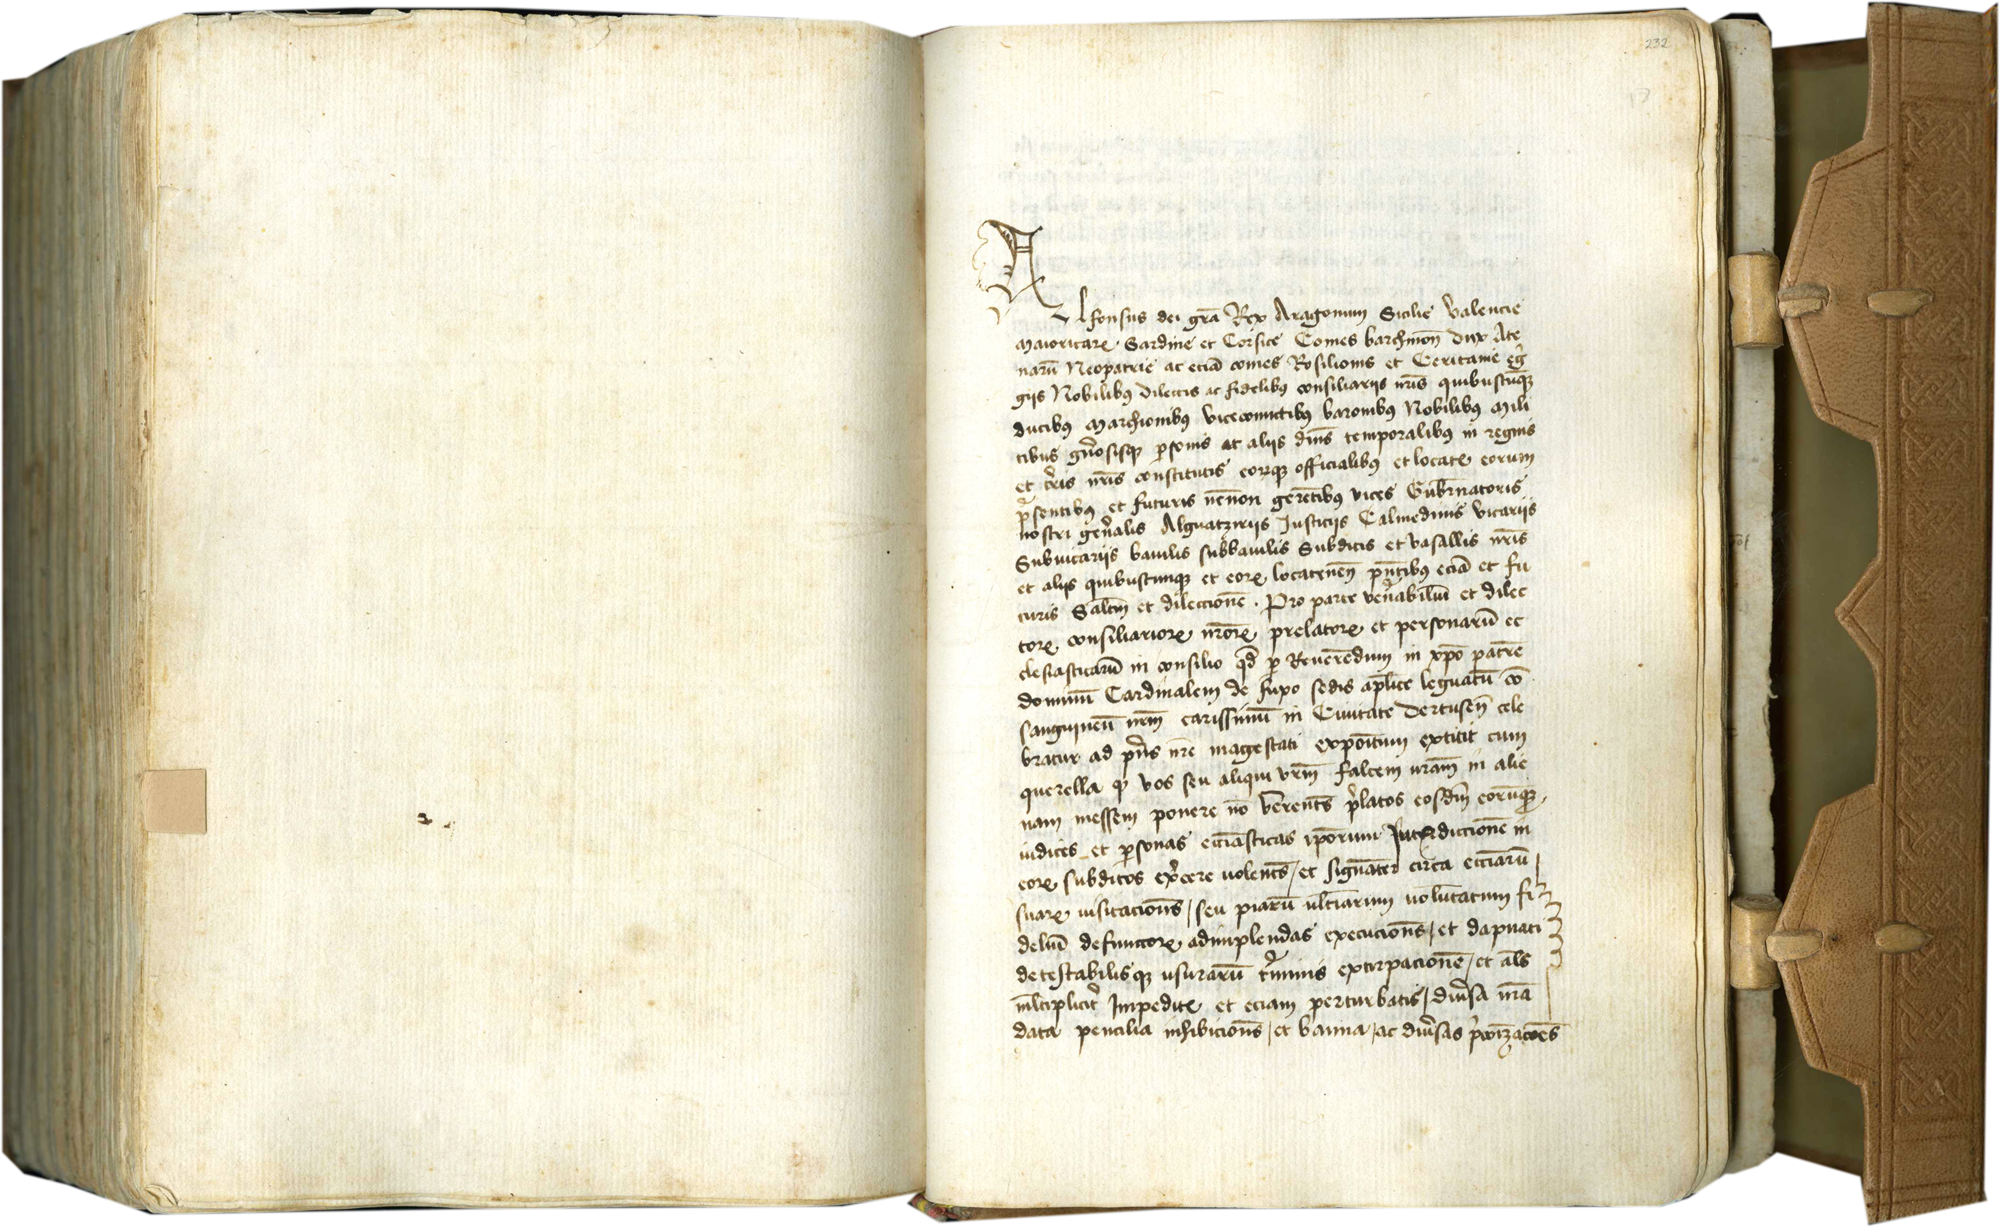 232
13
Alfonsus dei grã Rex Aragonum Sicilie Valencie
Maioricaꝝ Sardine et Corsice Comes barchinoñ Dux Ate
narũ Neopatrie ac eciã comes Rosilionis et Ceritanie egꝛ̃
giis Nobilibꝰ dilectis ac fidelibꝰ consiliariis nr̃is quibuscũqꝫ
ducibꝰ Marchionibꝰ vicecomitibꝰ baronibꝰ Nobilibꝰ Mili
tibus gñosisqꝫ ꝑsonis at aliis dñis temporalibꝰ in regnis
et tr̃is nr̃is constitutis eorqꝫ officialibꝰ et locateꝝ eorum
p̃sentibꝰ et futuris necnon gerẽtibꝰ vices Gub̃rnatoris
nostri geñalis Alguatziriis Iusticiis Calmedinis vicariis
Subvicariis baiulis subbaiulis Subditis et vasallis nr̃is
et aliis quibuscunqꝫ et eoꝝ locateneñ pñtibꝰ eciã et fu
turis Saltm̃ et dileccionẽ . Pro parte veñabiliũ et dilec
toꝝ consiliarioꝝ nr̃oꝝ prelatoꝝ et personarũ ec
clesiasticarũ in consilio qd̃ ꝑ Reuerẽdum in xp̃o patrẽ
dominũ Cardinalem de fuxo sedis ap̃lice leguatũ co
sanguineũ nr̃m carissimũ in Ciuitate Dertuseñ cele
bratur ad pñs nr̃e magestati expoitum extitit cum
querella qꝫ vos seu aliqui vr̃m falcem vr̃am in alie
nam messem ponere nõ verentes p̃latos eosdm̃ eorũqꝫ
iudices et ꝑsonas ecciãsticas ip̃orum Iurisdiccionẽ in
eoꝝ subditos ex̃cere uolentes / et signãter circa ecciãrũ
suaꝝ uisitaciones / seu piarũ ultĩarum uolũtatum fi
deliũ defunctoꝝ adimplendas execuciones / et dapnati
detestabilisqꝫ usurarũ cr̃iminis extirpacionẽ / et als̃
ml̃tiplicit̃ Impedite et eciam perturbatis / diũsa nr̃a
data pencilia inhibiciones / et banna / ac diũsas p̃conizacoẽs